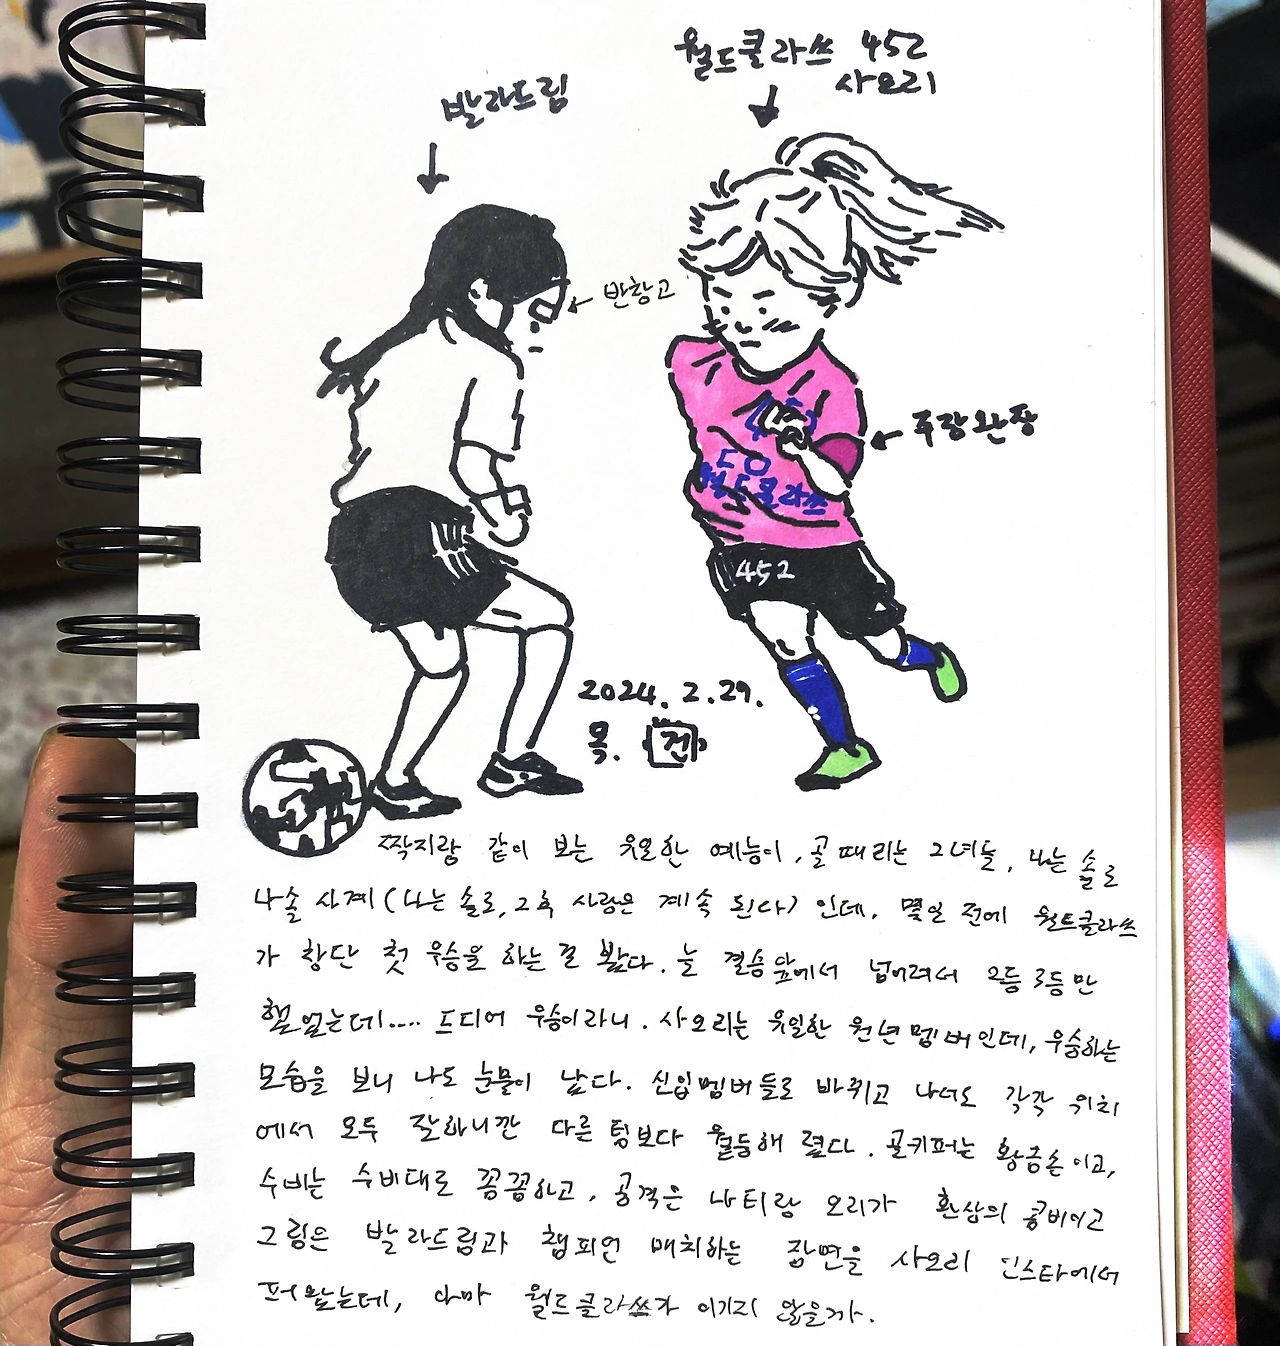 월드클라쓰 452
사오리
발라드림
반창고
주장완장
452
월드클라쓰
452
2024. 2. 29.
목.
짝지랑 같이 보는 유일한 예능이, 골 때리는 그녀들, 나는 솔로
나솔 사계(나는 솔로, 그 후 사랑은 계속 된다) 인데, 몇일 전에 월드클라쓰
가 창단 첫 우승을 하는 걸 봤다. 늘 결승 앞에서 넘어져서 2등 3등만
했었는데.... 드디어 우승이라니. 사오리는 유일한 원년 멤버인데, 우승하는
모습을 보니 나도 눈물이 났다. 신입멤버들로 바뀌고 나서도 각각 위치
에서 모두 잘하니깐 다른 팀보다 월등해 졌다. 골키퍼는 황금손이고,
수비는 수비대로 꼼꼼하고, 공격은 나티랑 오리가 환상의 콤비이고
그림은 발라드림과 챔피언 매치하는 장면을 사오리 인스타에서
퍼왔는데, 아마 월드클라쓰가 이기지 않을까.